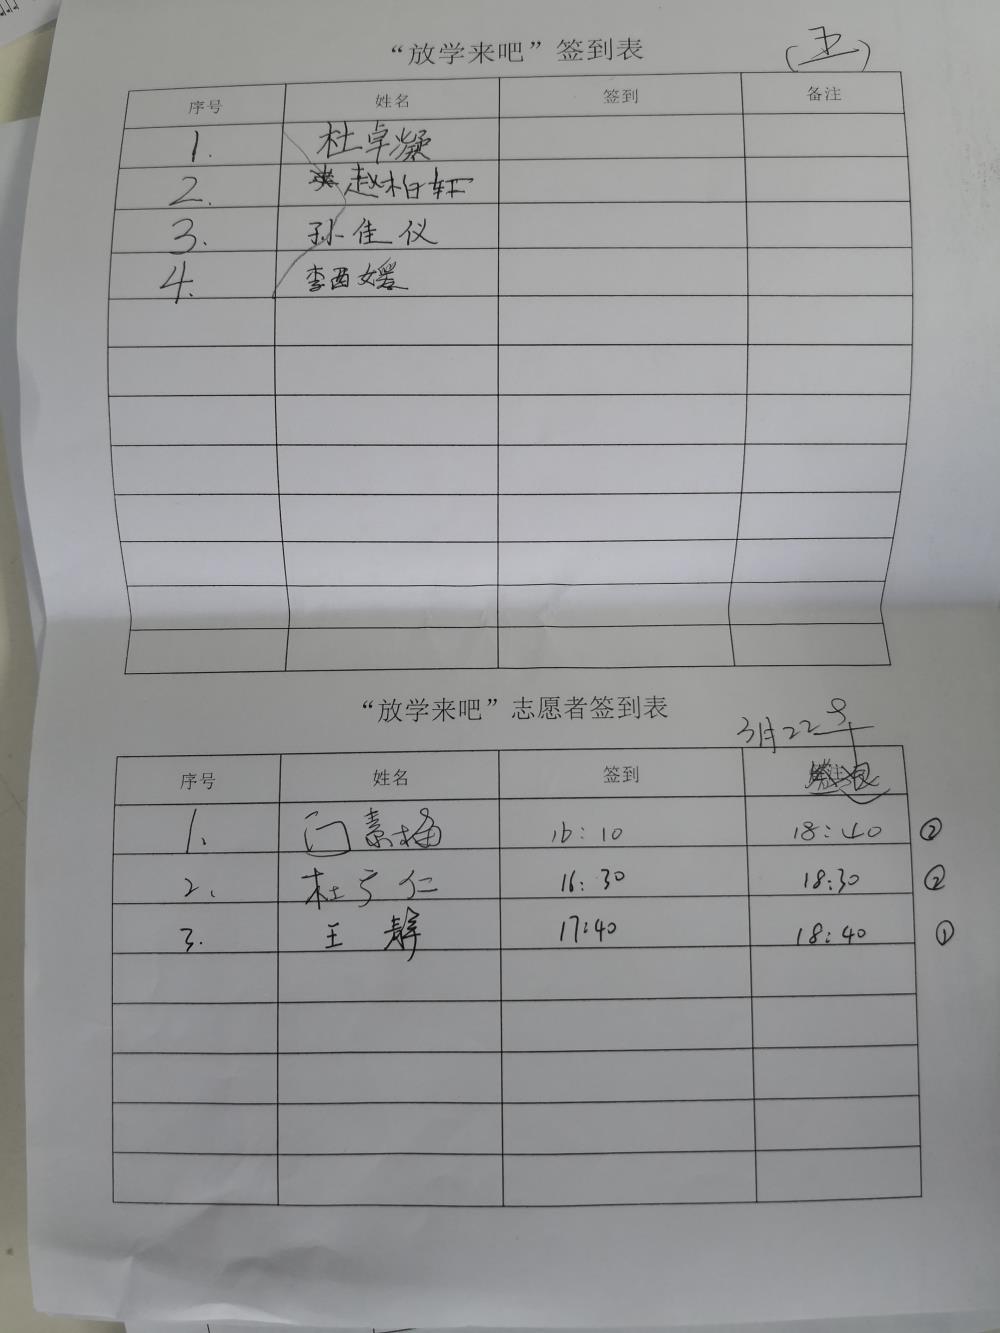 “放学来吧”签到表
(五)
序号 姓名 签到 备注
1. 杜卓凝
2. 赵柏轩
3. 孙佳仪
4. 李西媛
“放学来吧”志愿者签到表
3月22号
序号 姓名 签到
1. 门素梅 16:10 18:40 ②
2. 杜广仁 16:30 18:30 ②
3. 王静 17:40 18:40 ①